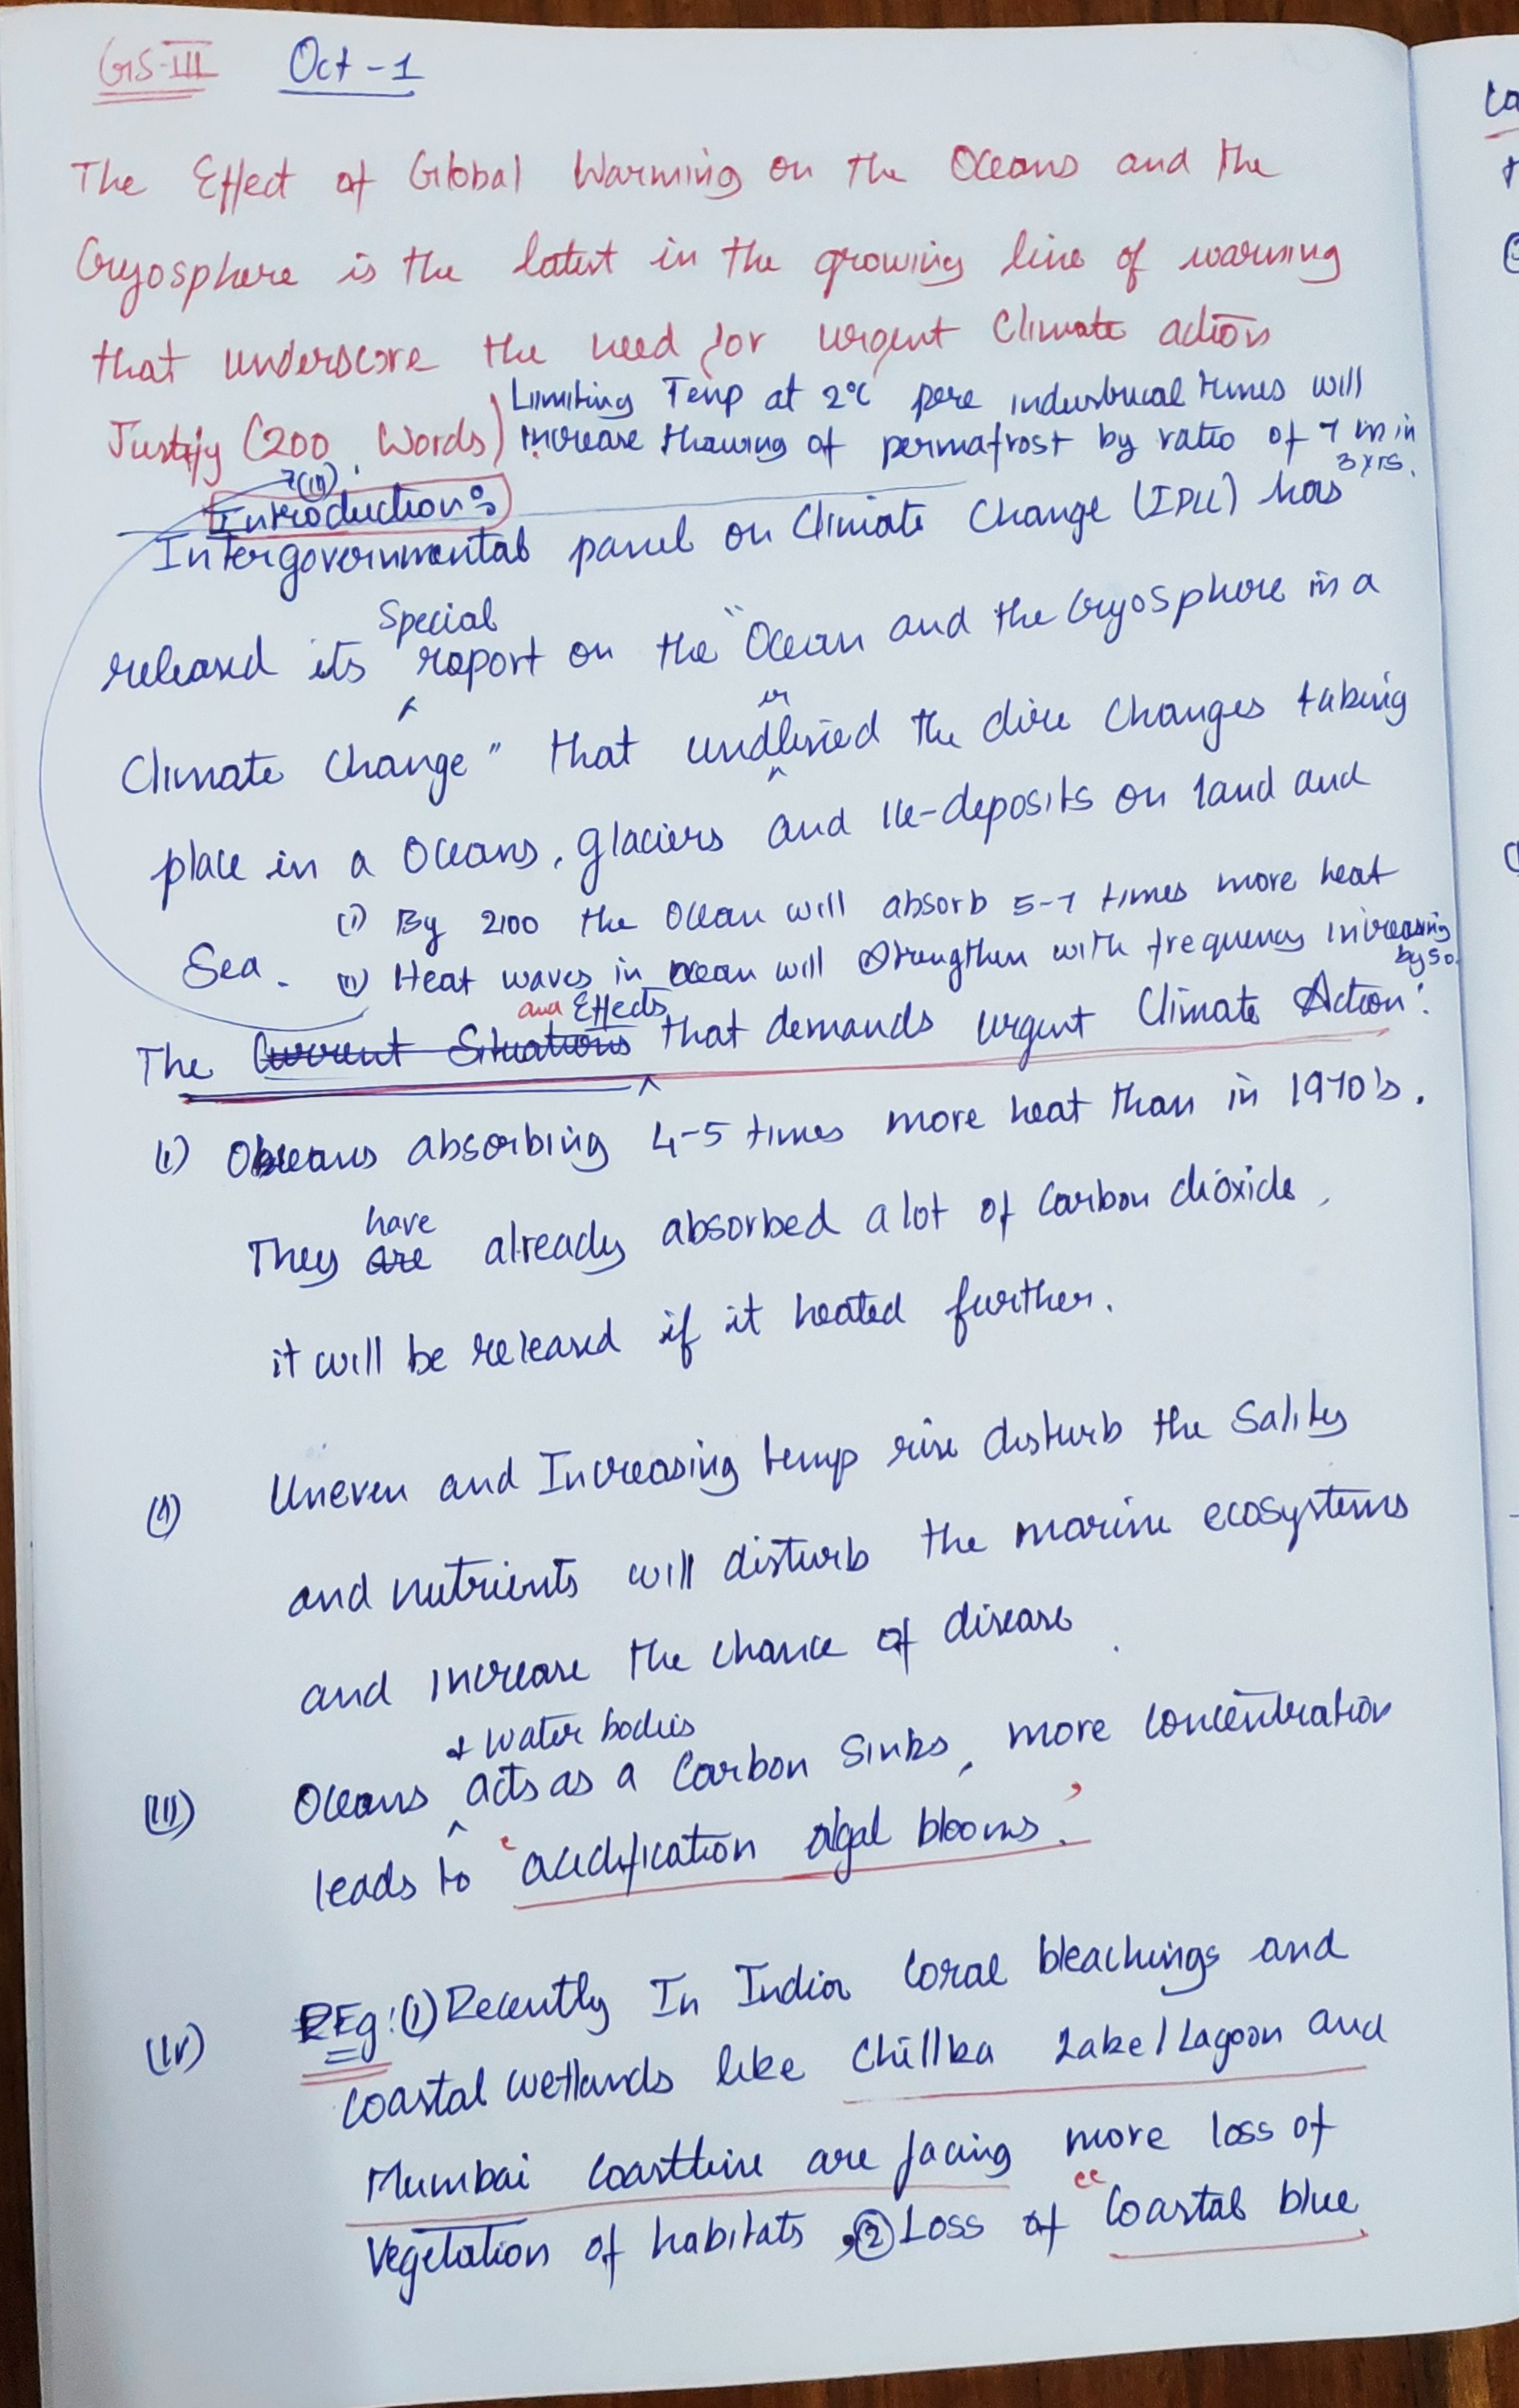 GS-III Oct-1
The Effect of Global Warming on the Oceans and the
Cryosphere is the latest in the growing line of warning
that underscore the need for urgent Climate action
Justify (200 Words) Limiting Temp at 2°C pere industrical times will
increase thawing of permafrost by ratio of 7 m in
3 yrs.
Introduction:
Intergovernmental panel on Climate Change (IPCC) has
released its special report on the "Ocean and the Cryosphere in a
Climate Change" that underlined the dire changes taking
place in a Oceans, glaciers and ice-deposits on land and
Sea. (i) By 2100 the Ocean will absorb 5-7 times more heat
(ii) Heat waves in ocean will strengthen with frequency increasing
by 50.
The Current Situations and Effects that demands urgent Climate Action:
(i) Oceans absorbing 4-5 times more heat than in 1970's.
They are have already absorbed a lot of Carbon dioxide,
it will be released if it heated further.
(ii) Uneven and Increasing temp rise disturb the Sality
and nutrients will disturb the marine ecosystems
and increase the chance of disease.
(iii) Oceans & water bodies acts as a Carbon Sinks, more concentration
leads to 'acidification algal blooms.'
(iv) Eg: (1) Recently In India Coral bleachings and
coastal wetlands like Chillka Lake/Lagoon and
Mumbai Coastline are facing more loss of
Vegetation of habitats, (2) Loss of "Coastal blue